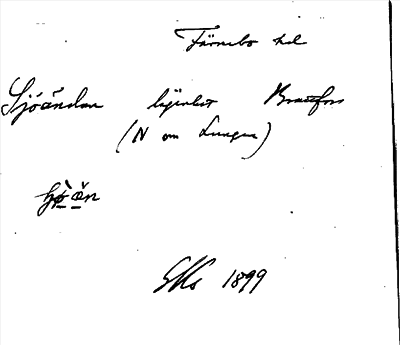 Färnebo hd
Sjöändan lägenhet Brattfors
(N om Lungen)
EKs 1899